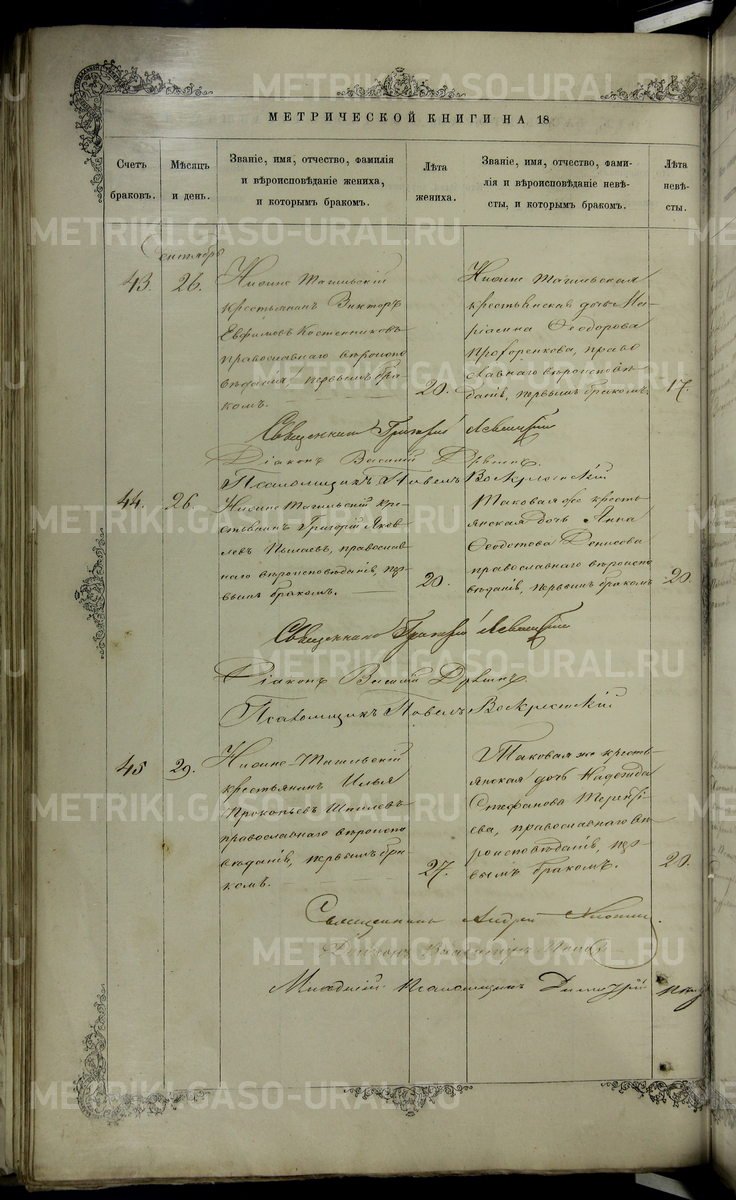 МЕТРИЧЕСКОЙ КНИГИ НА 18
Счетъ браковъ.
Мѣсяцъ и день.
Званіе, имя, отчество, фамилія
и вѣроисповѣданіе жениха,
и которымъ бракомъ.
Лѣта жениха.
Званіе, имя, отчество, фами-
лія и вѣроисповѣданіе невѣ-
сты, и которымъ бракомъ.
Лѣта невѣ-
сты.
Сентябрь
43.
26.
Нижне Тагильскій
крестьянинъ Викторъ
Евфимовъ Костенниковъ
православнаго вѣроиспо
вѣданія, первымъ бра
комъ.
20.
Нижне Тагильская
крестьянская дочь Ма-
Ѳеодорова
право
славнаго вѣроисповѣ
данія, первымъ бракомъ.
17.
Священникъ Григорій
Діаконъ Василій
Псаломщикъ Павелъ Воскресенскій
44.
26.
Нижне Тагильскій кре-
стьянинъ Григорій Яков
левъ православ
наго вѣроисповѣданія, пер
вымъ бракомъ.
20.
Таковая же кресть-
янская дочь Анна
Ѳеодотова Денисова
православнаго вѣроиспо
вѣданія, первымъ бракомъ
20.
Священникъ Григорій
Діаконъ Василій
Псаломщикъ Павелъ Воскресенскій
45
29.
Нижне-Тагильскій
крестьянинъ Илья
Прокопьевъ
православнаго вѣроиспо
вѣданія, первымъ бра
комъ.
27.
Таковая же кресть-
янская дочь Надежда
Стефанова Терентьі
ева, православнаго вѣ
роисповѣданія, пер-
вымъ бракомъ.
20.
Священникъ Андрей
Діаконъ
Младшій псаломщикъ Димитрій
METRIKI.GASO-URAL.RU